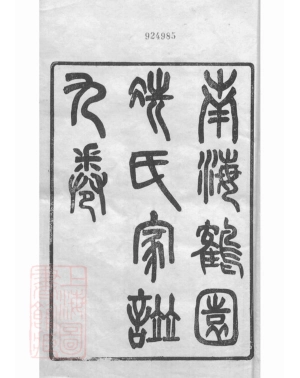 924985
南海鶴園
冼氏家譜
九卷